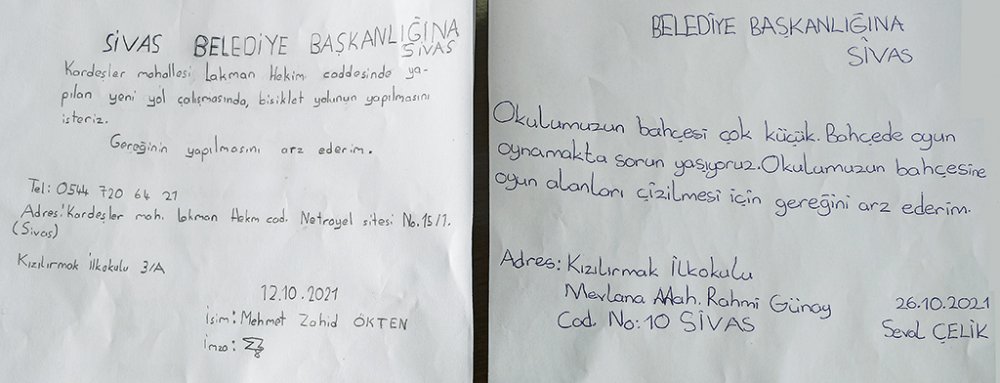 SİVAS BELEDİYE BAŞKANLIĞINA
SİVAS
Kardeşler mahallesi Lakman Hekim caddesinde ya-
pılan yeni yol çalışmasında, bisiklet yolunun yapılmasını
isteriz.
Gereğinin yapılmasını arz ederim.
Tel: 0544 720 64 21
Adres: Kardeşler mah. Lakman Hekm cad. Netroyel sitesi No.15/1.
(Sivas)
Kızılırmak İlkokulu 3/A
12.10.2021
İsim: Mehmet Zahid ÖKTEN
İmza:
BELEDİYE BAŞKANLIĞINA
SİVAS
Okulumuzun bahçesi çok küçük. Bahçede oyun
oynamakta sorun yaşıyoruz. Okulumuzun bahçesine
oyun alanları çizilmesi için gereğini arz ederim.
Adres: Kızılırmak İlkokulu
Mevlana Mah. Rahmi Günay
Cad. No: 10 SİVAS
26.10.2021
Seval ÇELİK